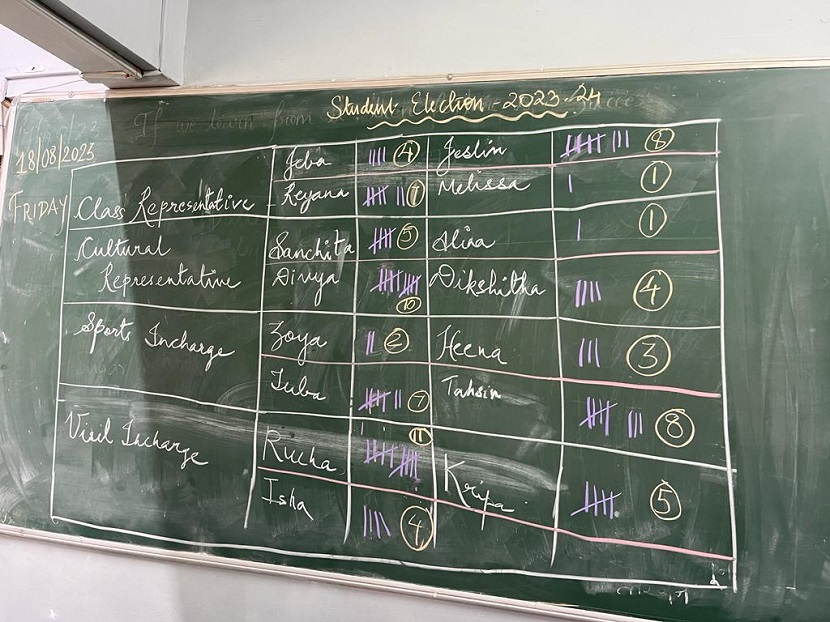 Student Election - 2023-24
18/08/2023
FRIDAY
Class Representative
Jeba 4 Jeslin 8
Reyana 7 Melissa 1
Cultural
Representative
Sanchita 5 Alina 1
Divya 10 Dikshitha 4
Sports Incharge
Zoya 2 Heena 3
Juba 7 Tahsin 8
Visil Incharge
Rucha 11 Kripa 5
Isha 4